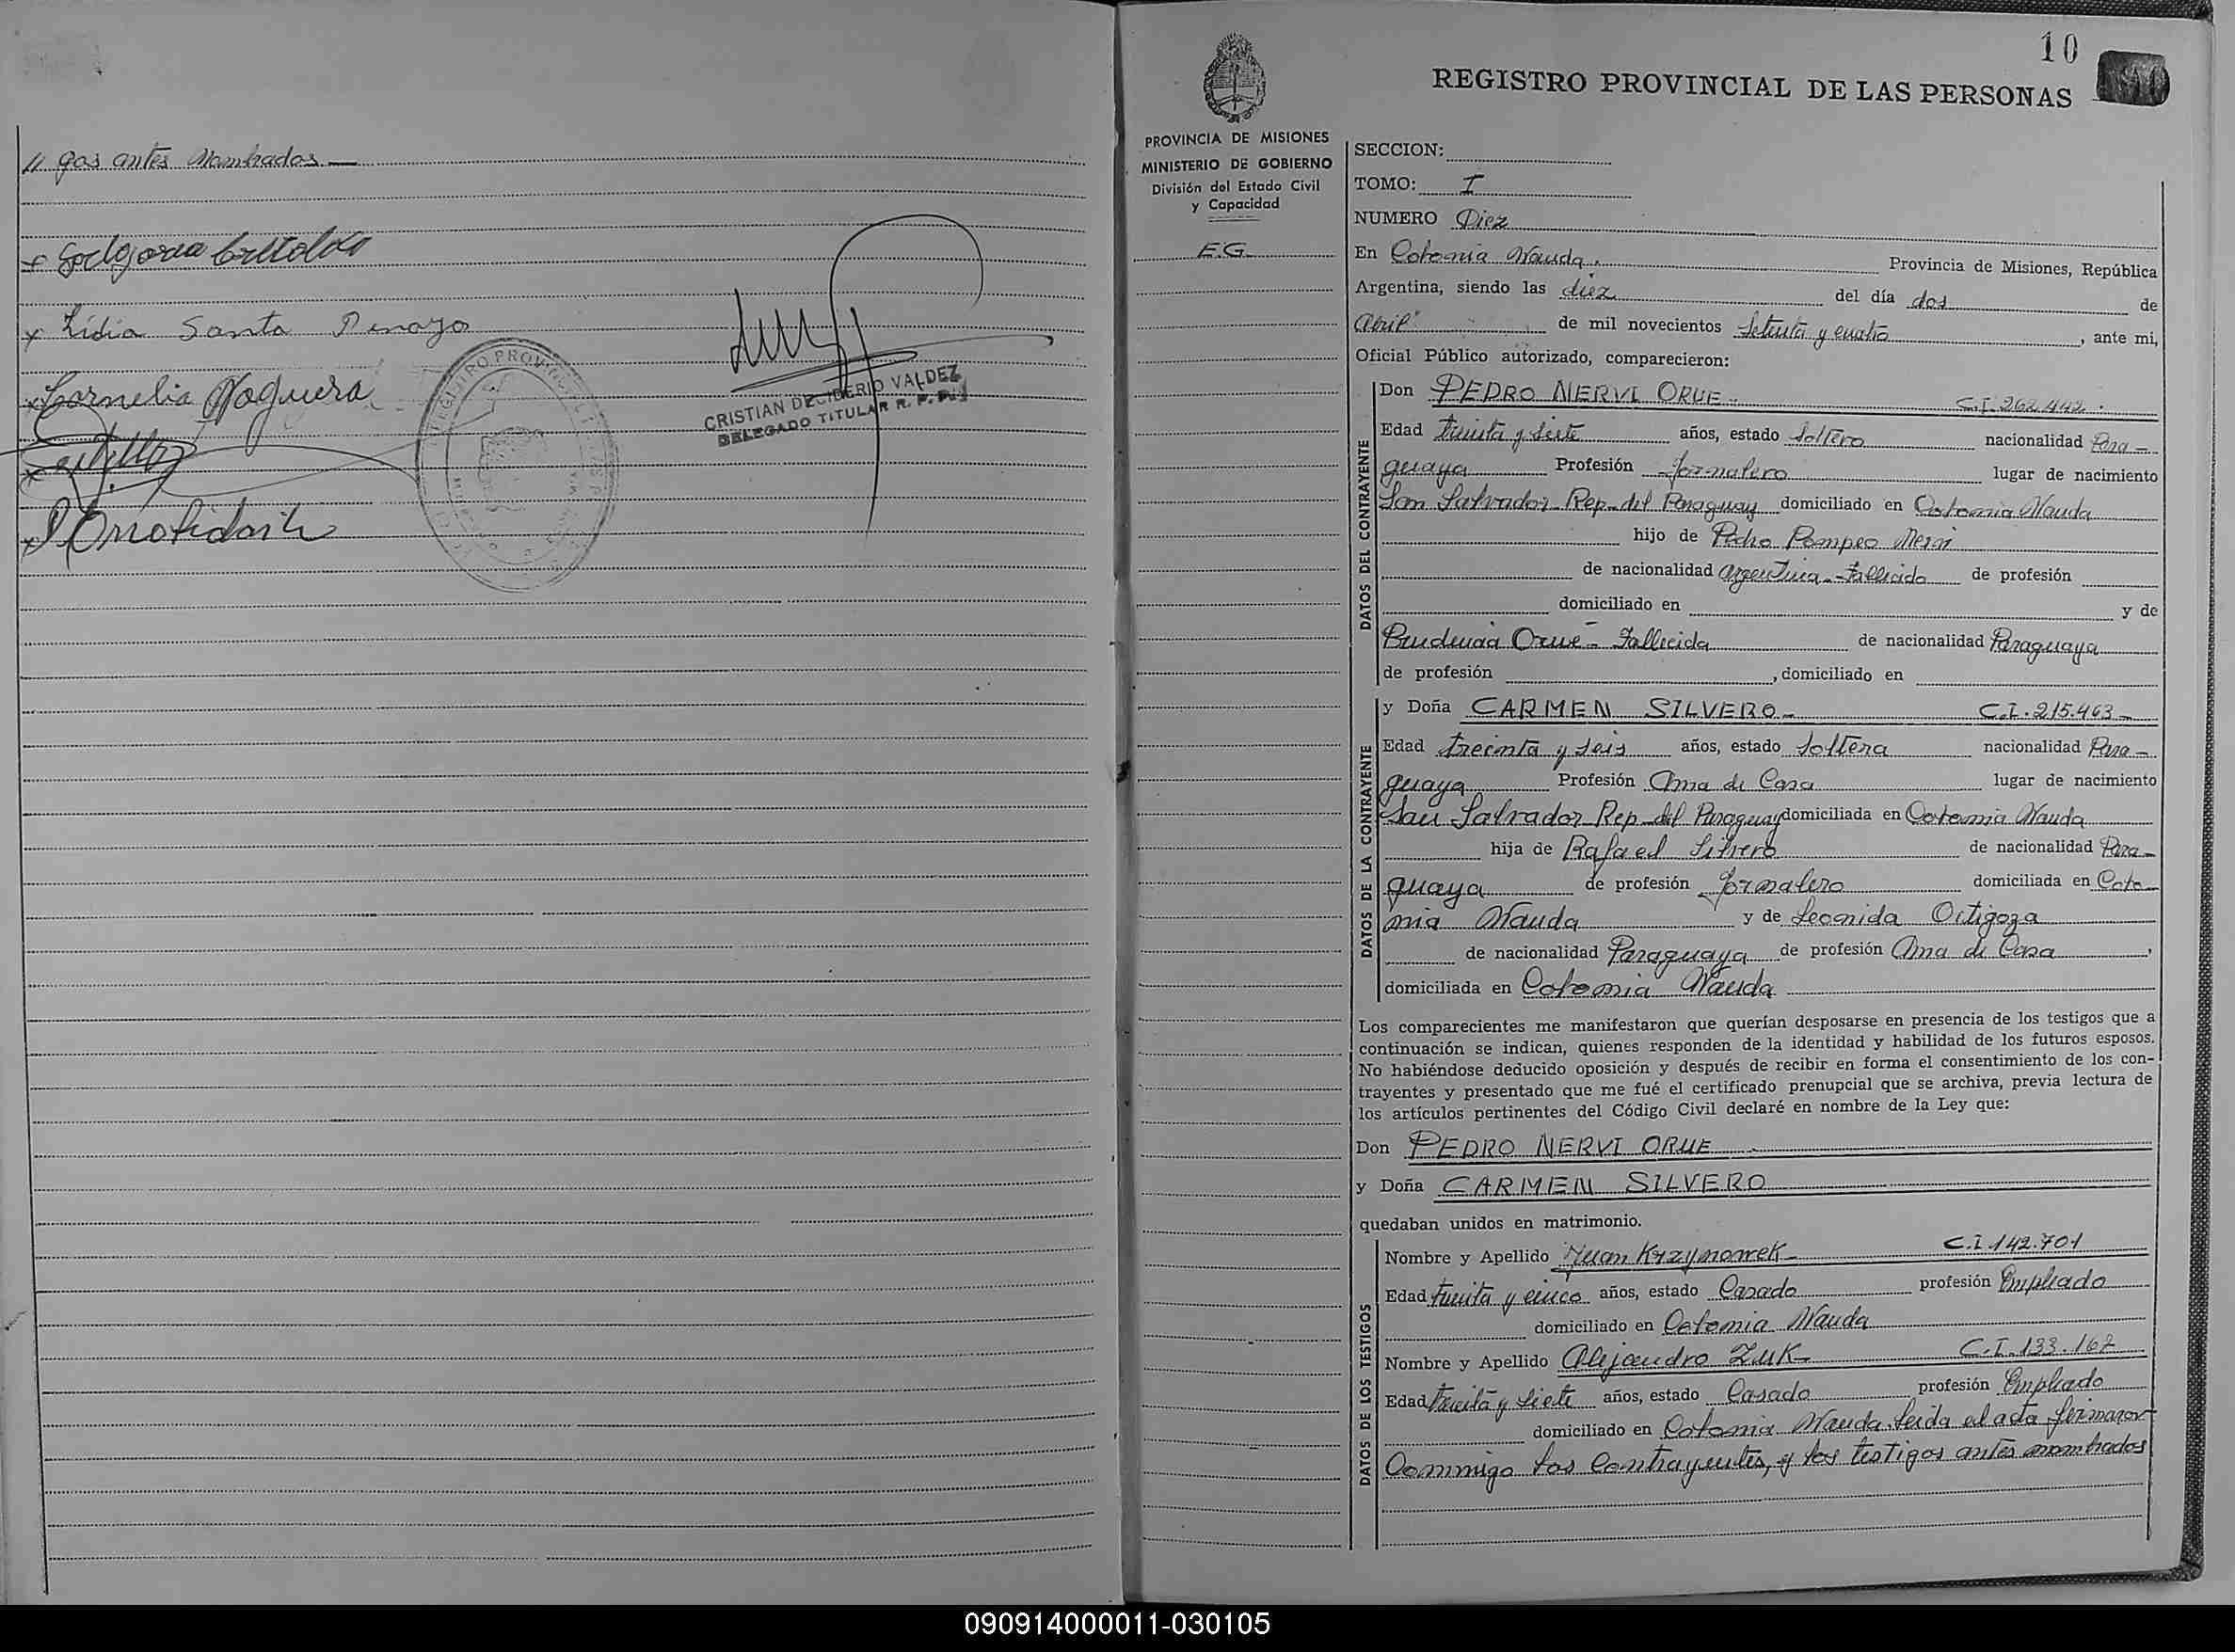 // gos antes Nombrados
x Lidia Santa Penayo
x Cornelia Noguera
CRISTIAN DECIDERIO VALDEZ
DELEGADO TITULAR R. P. P.
10
REGISTRO PROVINCIAL DE LAS PERSONAS
PROVINCIA DE MISIONES
MINISTERIO DE GOBIERNO
División del Estado Civil
y Capacidad
E.G.
SECCION:
TOMO: I
NUMERO Diez
En Colonia Wanda. Provincia de Misiones, República
Argentina, siendo las diez del día dos de
Abril de mil novecientos Setenta y cuatro, ante mi,
Oficial Público autorizado, comparecieron:
DATOS DEL CONTRAYENTE
Don PEDRO NERVI ORUE C.I. 262.442.
Edad treinta y siete años, estado Soltero nacionalidad Para-
guaya Profesión Jornalero lugar de nacimiento
San Salvador-Rep-del Paraguay domiciliado en Colonia Wanda
hijo de Pedro Pompeo Nervi
de nacionalidad Argentina-Fallecido de profesión
domiciliado en y de
Prudencia Orué-Fallecida de nacionalidad Paraguaya
de profesión , domiciliado en
DATOS DE LA CONTRAYENTE
y Doña CARMEN SILVERO- C.I. 215.463-
Edad treinta y seis años, estado Soltera nacionalidad Para-
guaya Profesión Ama de Casa lugar de nacimiento
San Salvador-Rep-del Paraguay domiciliada en Colonia Wanda
hija de Rafael Silvero de nacionalidad Para-
guaya de profesión Jornalero domiciliada en Colo-
nia Wanda y de Leonida Ortigoza
de nacionalidad Paraguaya de profesión Ama de Casa,
domiciliada en Colonia Wanda
Los comparecientes me manifestaron que querían desposarse en presencia de los testigos que a
continuación se indican, quienes responden de la identidad y habilidad de los futuros esposos.
No habiéndose deducido oposición y después de recibir en forma el consentimiento de los con-
trayentes y presentado que me fué el certificado prenupcial que se archiva, previa lectura de
los artículos pertinentes del Código Civil declaré en nombre de la Ley que:
Don PEDRO NERVI ORUE
y Doña CARMEN SILVERO
quedaban unidos en matrimonio.
DATOS DE LOS TESTIGOS
Nombre y Apellido Juan Krzynowek- C.I. 142.701
Edad treinta y cinco años, estado Casado profesión Empleado
domiciliado en Colonia Wanda
Nombre y Apellido Alejandro Zuk- C.I. 133.162
Edad treinta y siete años, estado Casado profesión Empleado
domiciliado en Colonia Wanda. Leida el acta firmaron
Conmigo los Contrayentes, y los testigos antes nombrados
090914000011-030105